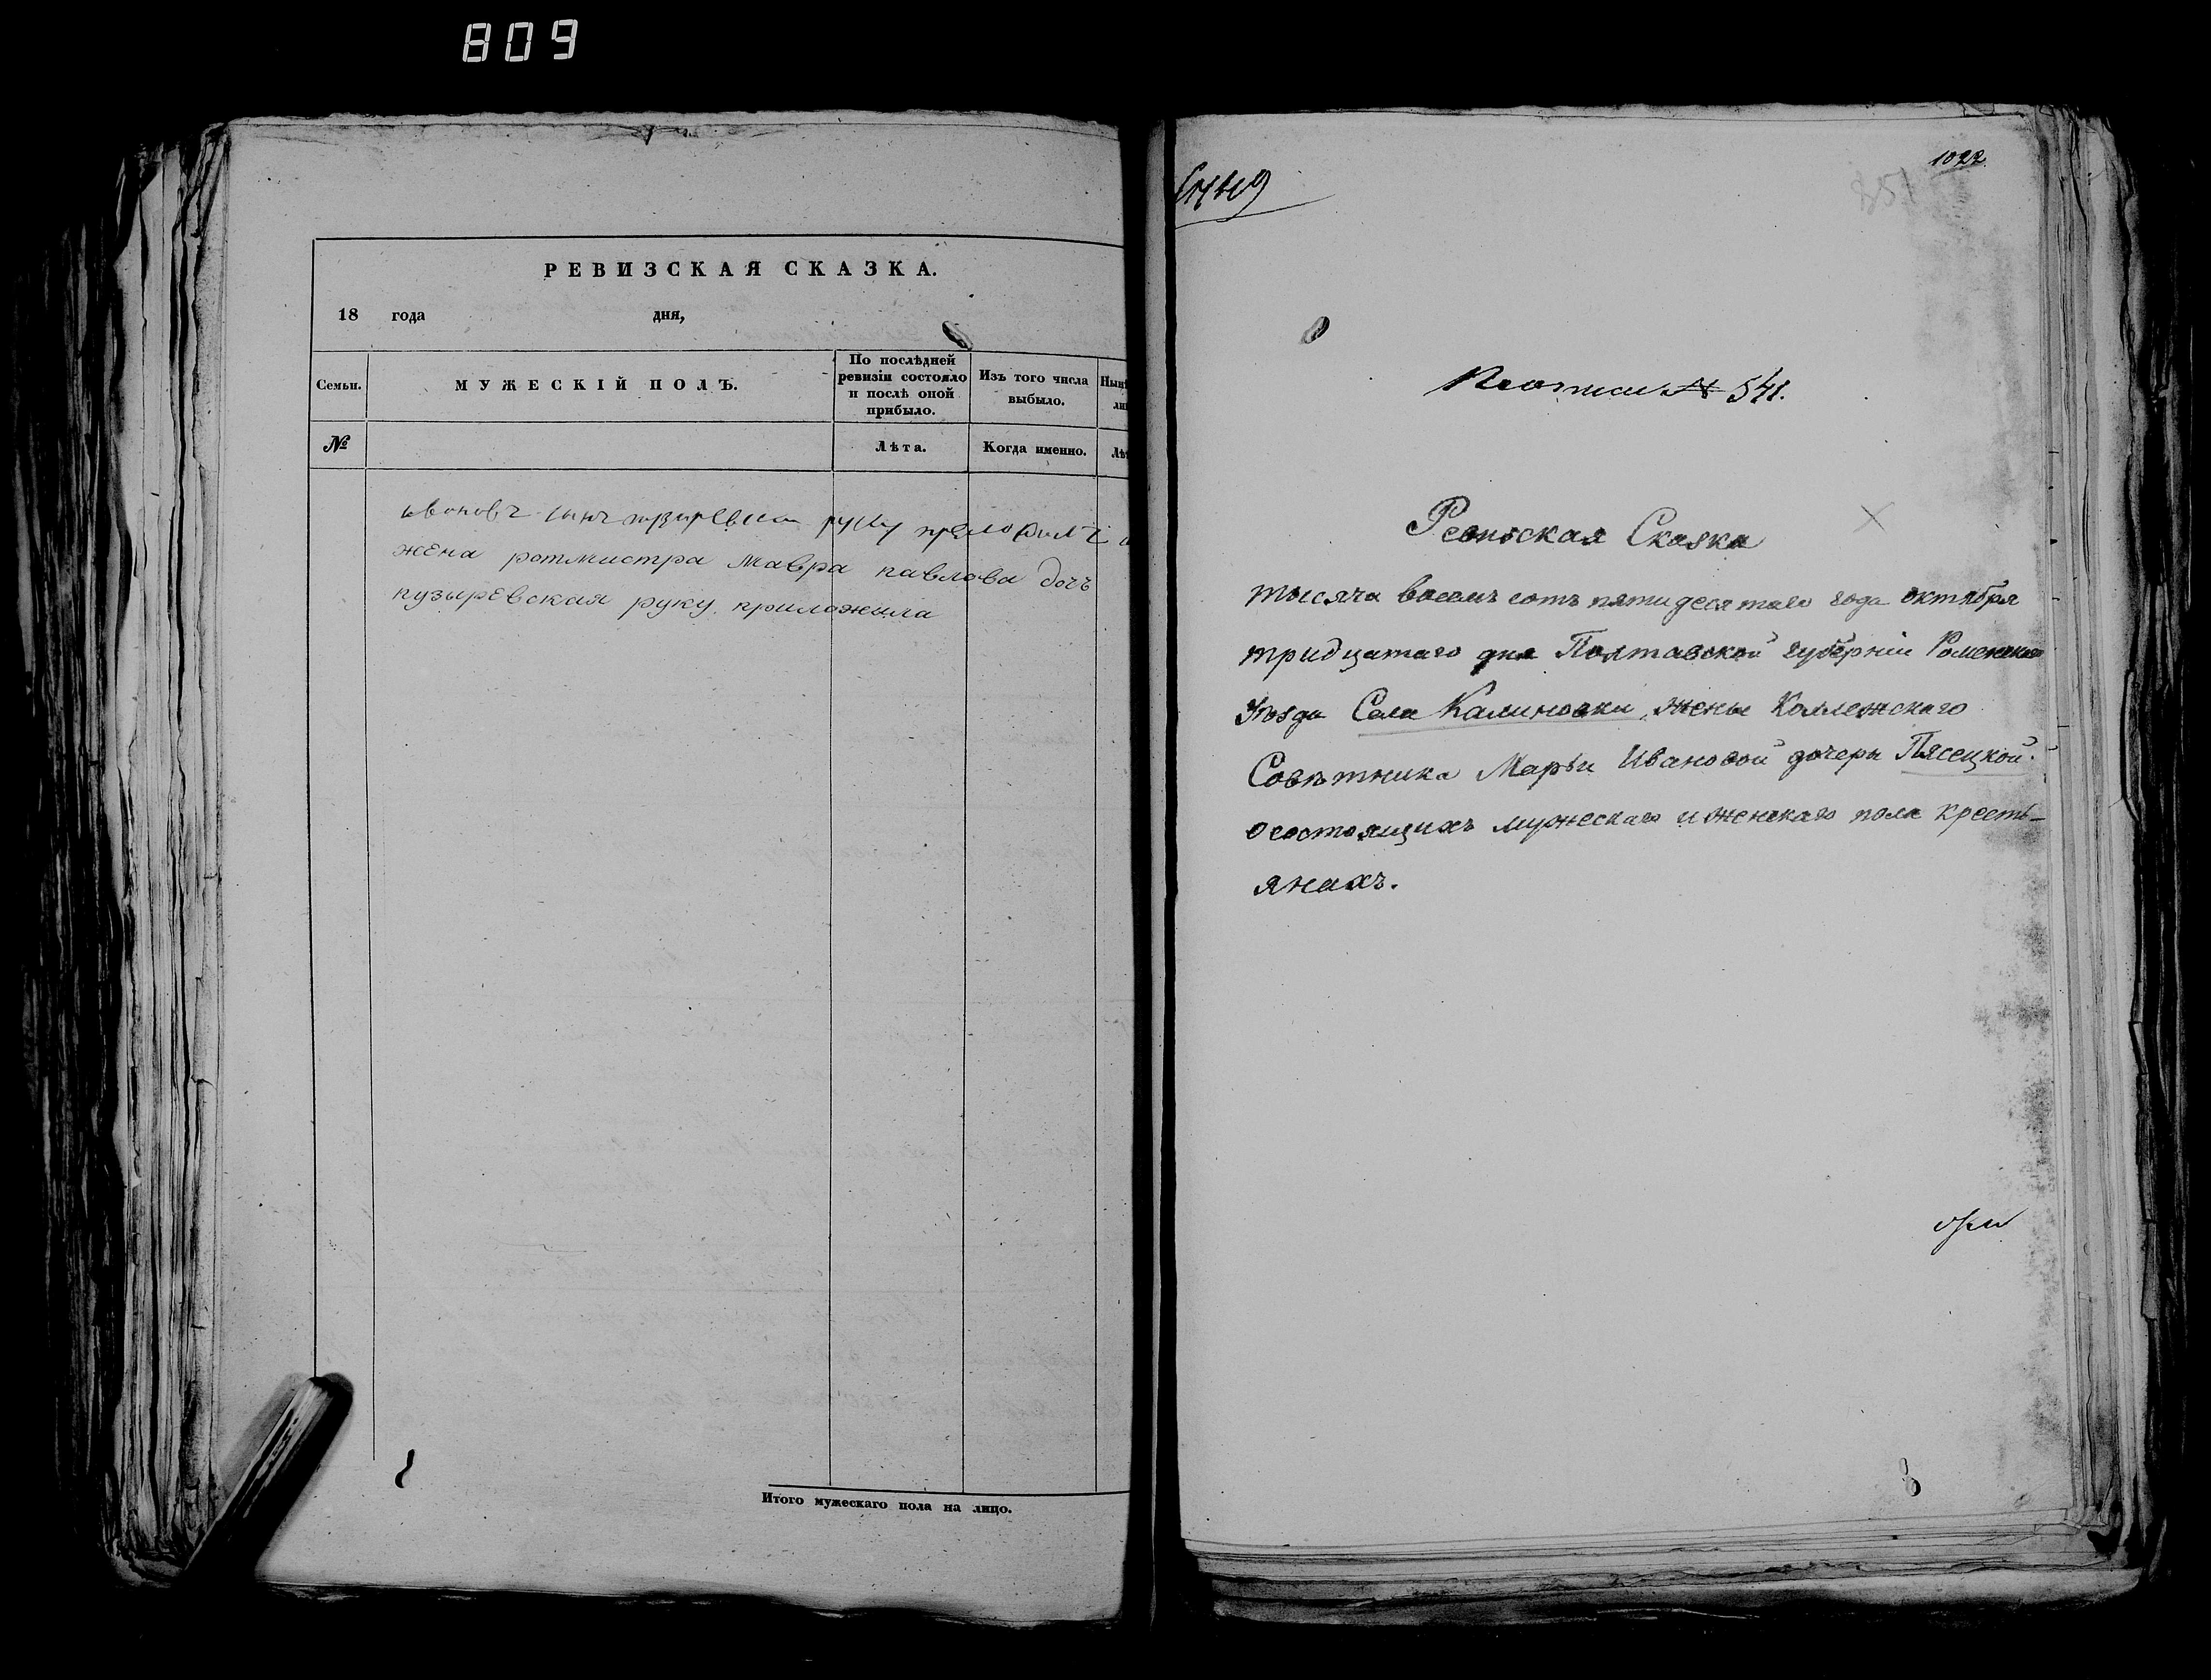 809
РЕВИЗСКАЯ СКАЗКА.
18 года дня,
Семьи.
МУЖЕСКІЙ ПОЛЪ.
По послѣдней
ревизіи состояло
и послѣ оной
прибыло.
Изъ того числа
выбыло.
№
Лѣта.
Когда именно.
сынъ руку приложилъ
жена ротмистра Мавра павлова дочь
пузыревская руку приложила
Итого мужескаго пола на лицо.
1022
№ 541.
Ревизская Сказка
тысяча восемъ сотъ пятидесятаго года октября
тридцатаго дня Полтавской губерніи Роменскаго
Уѣзда Села Калиновки, жены Коллежскаго
Совѣтника Марьи Ивановой дочери Пясецкой.
о состоящихъ мужескаго и женскаго пола кресть-
янахъ.